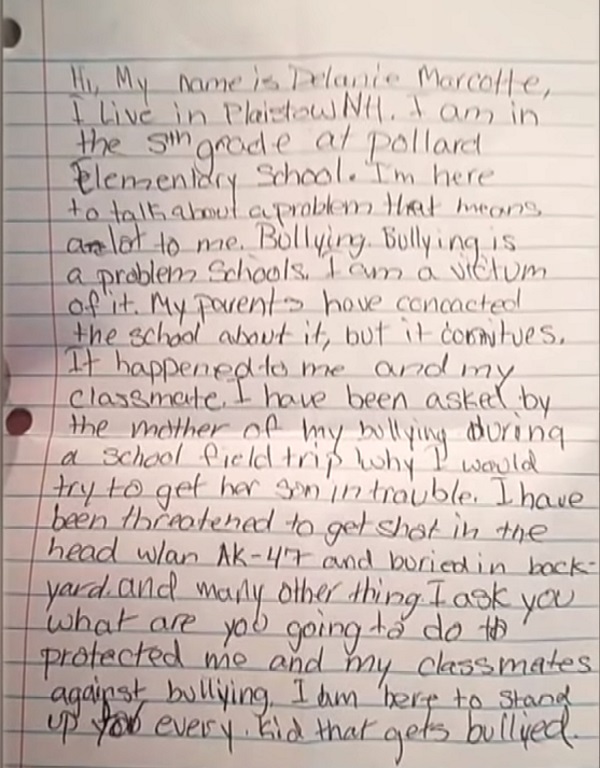 Hi, My name is Delanie Marcotte,
I Live in Plaistow NH. I am in
the 5th grade at pollard
Elementary School. I'm here
to talk about a problem that means
a lot to me. Bullying. Bullying is
a problem Schools. I am a victum
of it. My parents have concacted
the school about it, but it conntues.
It happened to me and my
classmate. I have been asked by
the mother of my bullying during
a school field trip why I would
try to get her son in trouble. I have
been threatened to get shot in the
head w/an AK-47 and buried in back-
yard. and many other thing. I ask you
what are you going to do to
protected me and my classmates
against bullying. I am here to stand
up for every kid that gets bullied.